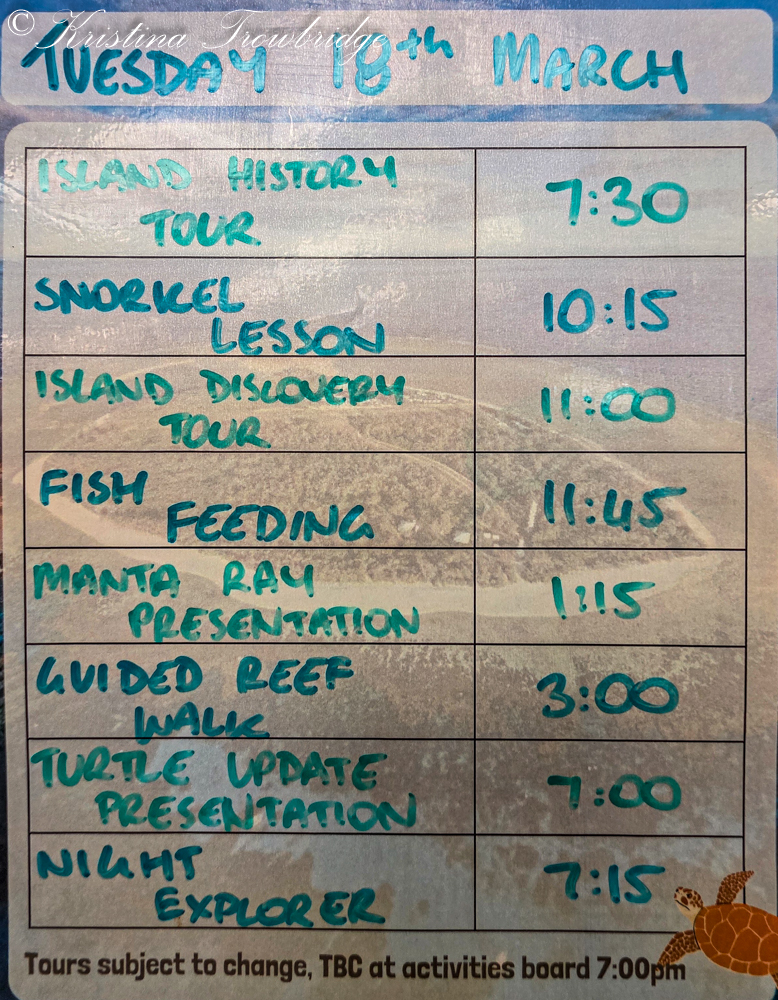 © Kristina Trowbridge
TUESDAY 18th MARCH
ISLAND HISTORY
TOUR
7:30
SNORKEL
LESSON
10:15
ISLAND DISCOVERY
TOUR
11:00
FISH
FEEDING
11:45
MANTA RAY
PRESENTATION
1:15
GUIDED REEF
WALK
3:00
TURTLE UPDATE
PRESENTATION
7:00
NIGHT
EXPLORER
7:15
Tours subject to change, TBC at activities board 7:00pm